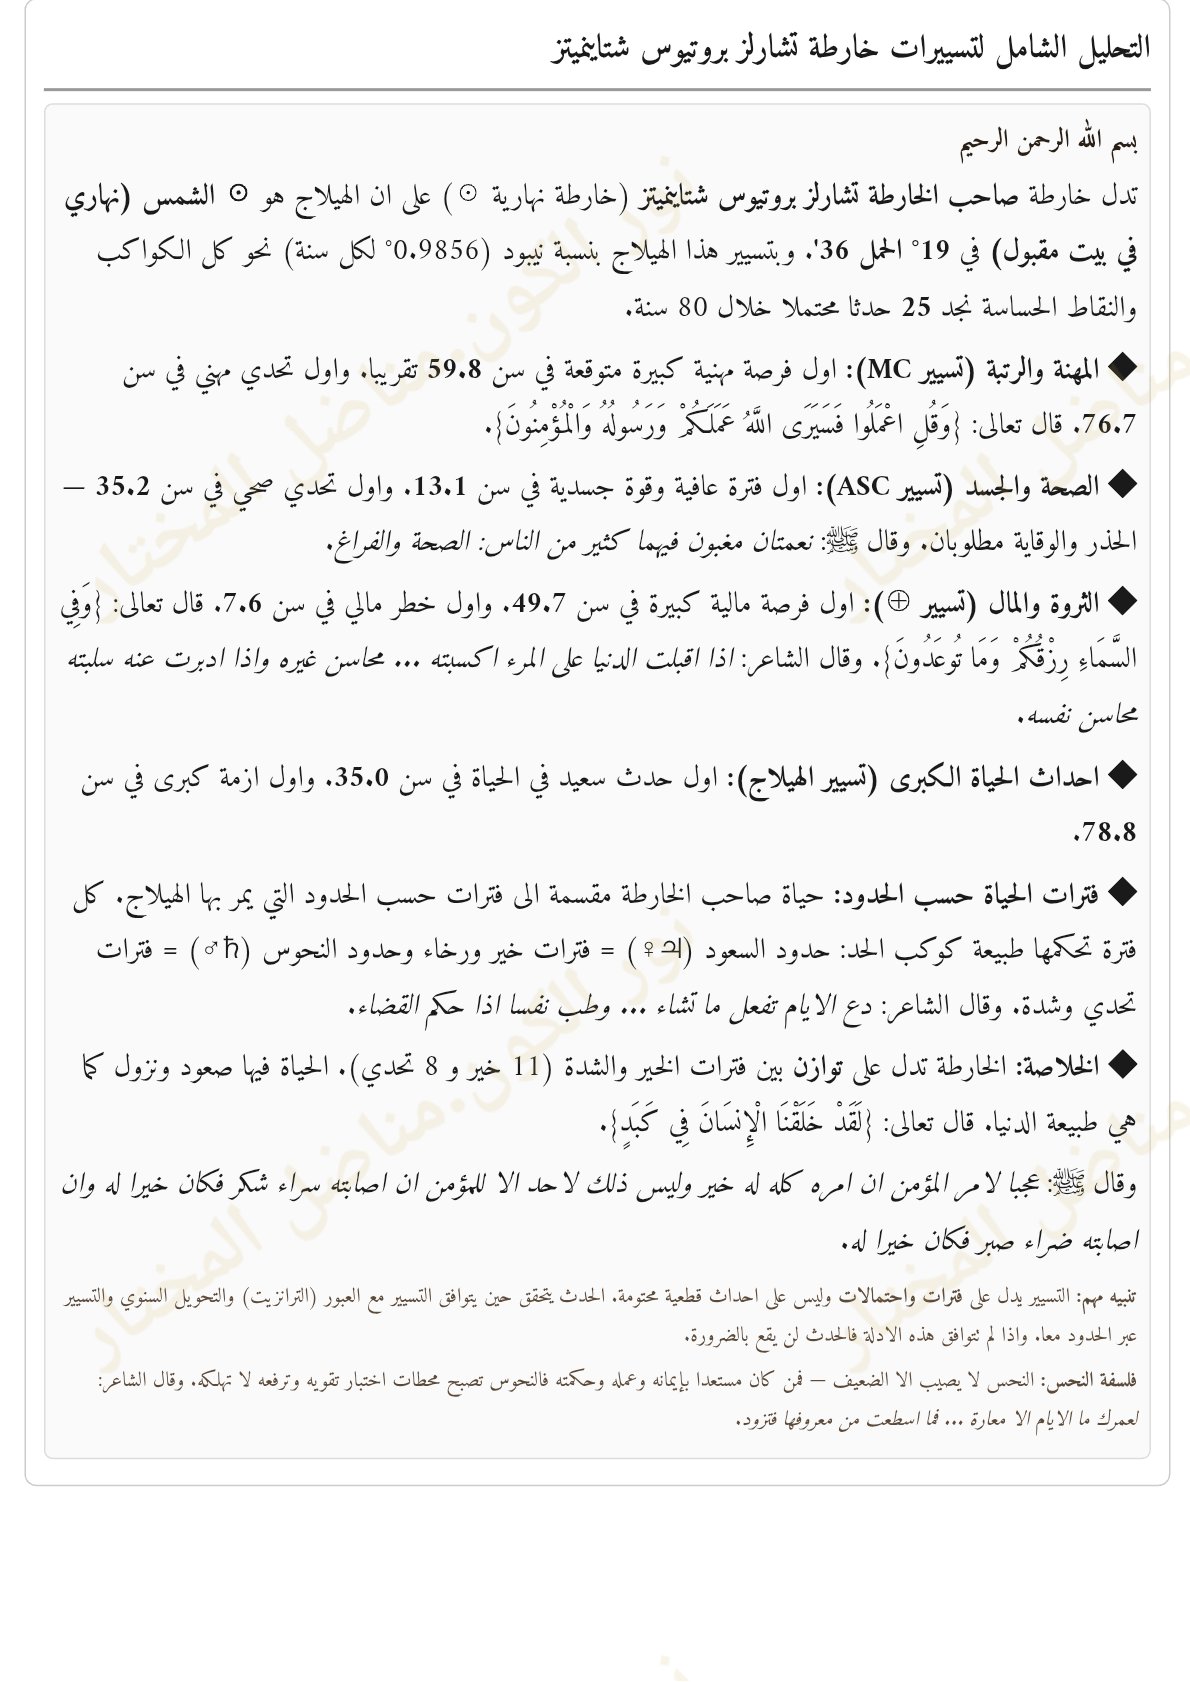 التحليل الشامل لتسييرات خارطة تشارلز بروتيوس شتاينميتز
بسم الله الرحمن الرحيم
تدل خارطة صاحب الخارطة تشارلز بروتيوس شتاينميتز (خارطة نهارية ☉) على ان الهيلاج هو ☉ الشمس (نهاري
في بيت مقبول) في 19° الحمل 36'. وبتسيير هذا الهيلاج بنسبة نيبود (0.9856° لكل سنة) نحو كل الكواكب
والنقاط الحساسة نجد 25 حدثا محتملا خلال 80 سنة.
◆ المهنة والرتبة (تسيير MC): اول فرصة مهنية كبيرة متوقعة في سن 59.8 تقريبا. واول تحدي مهني في سن
76.7. قال تعالى: {وَقُلِ اعْمَلُوا فَسَيَرَى اللَّهُ عَمَلَكُمْ وَرَسُولُهُ وَالْمُؤْمِنُونَ}.
◆ الصحة والجسد (تسيير ASC): اول فترة عافية وقوة جسدية في سن 13.1. واول تحدي صحي في سن 35.2 —
الحذر والوقاية مطلوبان. وقال ﷺ: نعمتان مغبون فيهما كثير من الناس: الصحة والفراغ.
◆ الثروة والمال (تسيير ⊕): اول فرصة مالية كبيرة في سن 49.7. واول خطر مالي في سن 7.6. قال تعالى: {وَفِي
السَّمَاءِ رِزْقُكُمْ وَمَا تُوعَدُونَ}. وقال الشاعر: اذا اقبلت الدنيا على المرء اكسبته ... محاسن غيره واذا ادبرت عنه سلبته
محاسن نفسه.
◆ احداث الحياة الكبرى (تسيير الهيلاج): اول حدث سعيد في الحياة في سن 35.0. واول ازمة كبرى في سن
78.8.
◆ فترات الحياة حسب الحدود: حياة صاحب الخارطة مقسمة الى فترات حسب الحدود التي يمر بها الهيلاج. كل
فترة تحكمها طبيعة كوكب الحد: حدود السعود (♃♀) = فترات خير ورخاء وحدود النحوس (♄♂) = فترات
تحدي وشدة. وقال الشاعر: دع الايام تفعل ما تشاء ... وطب نفسا اذا حكم القضاء.
◆ الخلاصة: الخارطة تدل على توازن بين فترات الخير والشدة (11 خير و 8 تحدي). الحياة فيها صعود ونزول كما
هي طبيعة الدنيا. قال تعالى: {لَقَدْ خَلَقْنَا الْإِنسَانَ فِي كَبَدٍ}.
وقال ﷺ: عجبا لامر المؤمن ان امره كله له خير وليس ذلك لاحد الا للمؤمن ان اصابته سراء شكر فكان خيرا له وان
اصابته ضراء صبر فكان خيرا له.
تنبيه مهم: التسيير يدل على فترات واحتمالات وليس على احداث قطعية محتومة. الحدث يتحقق حين يتوافق التسيير مع العبور (الترانزيت) والتحويل السنوي والتسيير
عبر الحدود معا. واذا لم تتوافق هذه الادلة فالحدث لن يقع بالضرورة.
فلسفة النحس: النحس لا يصيب الا الضعيف — فمن كان مستعدا بإيمانه وعمله وحكمته فالنحوس تصبح محطات اختبار تقويه وترفعه لا تهلكه. وقال الشاعر:
لعمرك ما الايام الا معارة ... فما اسطعت من معروفها فتزود.
نور الكون.مناضل المختار
مناضل المختار
نور الكون.مناضل المختار
مناضل المختار